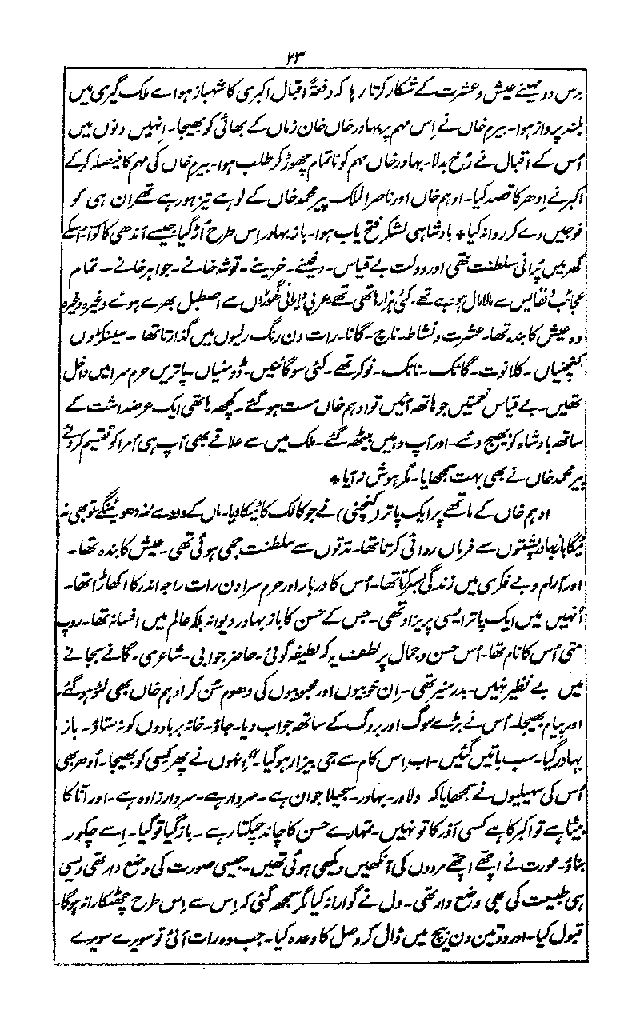 ۲۳
برس دو مہینے عیش و عشرت کے شکار کرتا رہا کہ دفعۃً اقبال اکبری کا شہباز ہوائے ملک گیری میں
بلند پرواز ہوا۔ بیرم خاں نے اس مہم پر بہادر خاں خان زماں کے بھائی کو بھیجا۔ انہیں دنوں میں
اُس کے اقبال نے رُخ بدلا۔ بہادر خاں مہم کو ناتمام چھوڑ کر طلب ہوا۔ بیرم خاں کی مہم کا فیصلہ کر کے
اکبر نے ادھر کا قصد کیا۔ ادہم خاں اور ناصر الملک پیر محمد خاں کے لوہے تیز ہو رہے تھے اِن ہی کو
فوجیں دے کر روانہ کیا * بادشاہی لشکر فتح یاب ہوا۔ باز بہادر اِس طرح اُڑ گیا جیسے آندھی کا کوّا اسکے
گھر میں پُرانی سلطنت تھی اور دولت بے قیاس۔ دفینے۔ خزینے۔ توشہ خانے۔ جواہر خانے۔ تمام
عجائب نفائس سے مالامال ہو رہے تھے۔ کئی ہزار ہاتھی تھے عربی ایرانی گھوڑوں سے اصطبل بھرے ہوئے وغیرہ وغیرہ
وہ عیش کا بندہ تھا۔ عشرت و نشاط۔ ناچ۔ گانا۔ رات دن رنگ رلیوں میں گزارتا تھا۔ سینکڑوں
کنچنیاں۔ کلانوت۔ گائک۔ نائک۔ نوکر تھے۔ کئی سو گائنیں۔ ڈومنیاں۔ پاتریں حرم سرا میں داخل
تھیں۔ بے قیاس نعمتیں جو ہاتھ آئیں تو ادہم خاں مست ہو گئے۔ کچھ ہاتھی ایک عرضداشت کے
ساتھ بادشاہ کو بھیج دئے۔ اور آپ وہیں بیٹھ گئے۔ ملک میں سے علاقے بھی آپ ہی اُمرا کو تقسیم کر دئے
پیر محمد خاں نے بھی بہت سمجھایا۔ مگر ہوش نہ آیا *
ادہم خاں کے ماتھے پر ایک پاتر (کنچنی) نے جو کالک کا ٹیکا دیا۔ ماں کے دودھ سے منہ دھوئینگے تو بھی نہ
مٹیگا باز بہادر پشتوں سے فرماں روائی کرتا تھا۔ مدتوں سے سلطنت جمی ہوئی تھی۔ عیش کا بندہ تھا۔
اور آرام و بے فکری میں زندگی بسر کرتا تھا۔ اُس کا دربار اور حرم سرا دن رات راجہ اندر کا اکھاڑا تھا۔
اُنہیں میں ایک پاتر ایسی پریزاد تھی۔ جس کے حسن کا باز بہادر دیوانہ بلکہ عالم میں افسانہ تھا۔ روپ
متی اُس کا نام تھا۔ اُس حسن و جمال پر لطف یہ کہ لطیفہ گوئی۔ حاضر جوابی۔ شاعری۔ گانے بجانے
میں بے نظیر نہیں۔ بدر منیر تھی۔ اِن خوبیوں اور محبوبیوں کی دھوم سُن کر ادہم خاں بھی لٹو ہو گئے۔
اور پیام بھیجا۔ اُس نے بڑے سوگ اور بروگ کے ساتھ جواب دیا۔ جاؤ۔ خانہ بربادوں کو نہ ستاؤ۔ باز
بہادر گیا۔ سب باتیں گئیں۔ اب اِس کام سے جی بیزار ہو گیا۔" اُنہوں نے پھر کسی کو بھیجا۔ اُدھر بھی
اُس کی سہیلیوں نے سمجھایا کہ دلاور۔ بہادر۔ سجیلا جوان ہے۔ سردار ہے۔ سردار زادہ ہے۔ اور آنا کا
بیٹا ہے تو اکبر کا ہے کسی اَور کا تو نہیں۔ تمہارے حُسن کا چاند چمکتا رہے۔ باز گیا تو گیا۔ اِسے چکور
بناؤ۔ عورت نے اچھے اچھے مردوں کی آنکھیں دیکھی ہوئی تھیں۔ جیسی صورت کی وضع دار تھی ویسی
ہی طبیعت کی بھی وضع دار تھی۔ دل نے گوارا نہ کیا مگر سمجھ گئی کہ اِس سے اِس طرح چھٹکارا نہ ہو گا۔
قبول کیا۔ اور دو تین دن بیچ میں ڈال کر وصل کا وعدہ کیا۔ جب وہ رات آئی تو سویرے سویرے